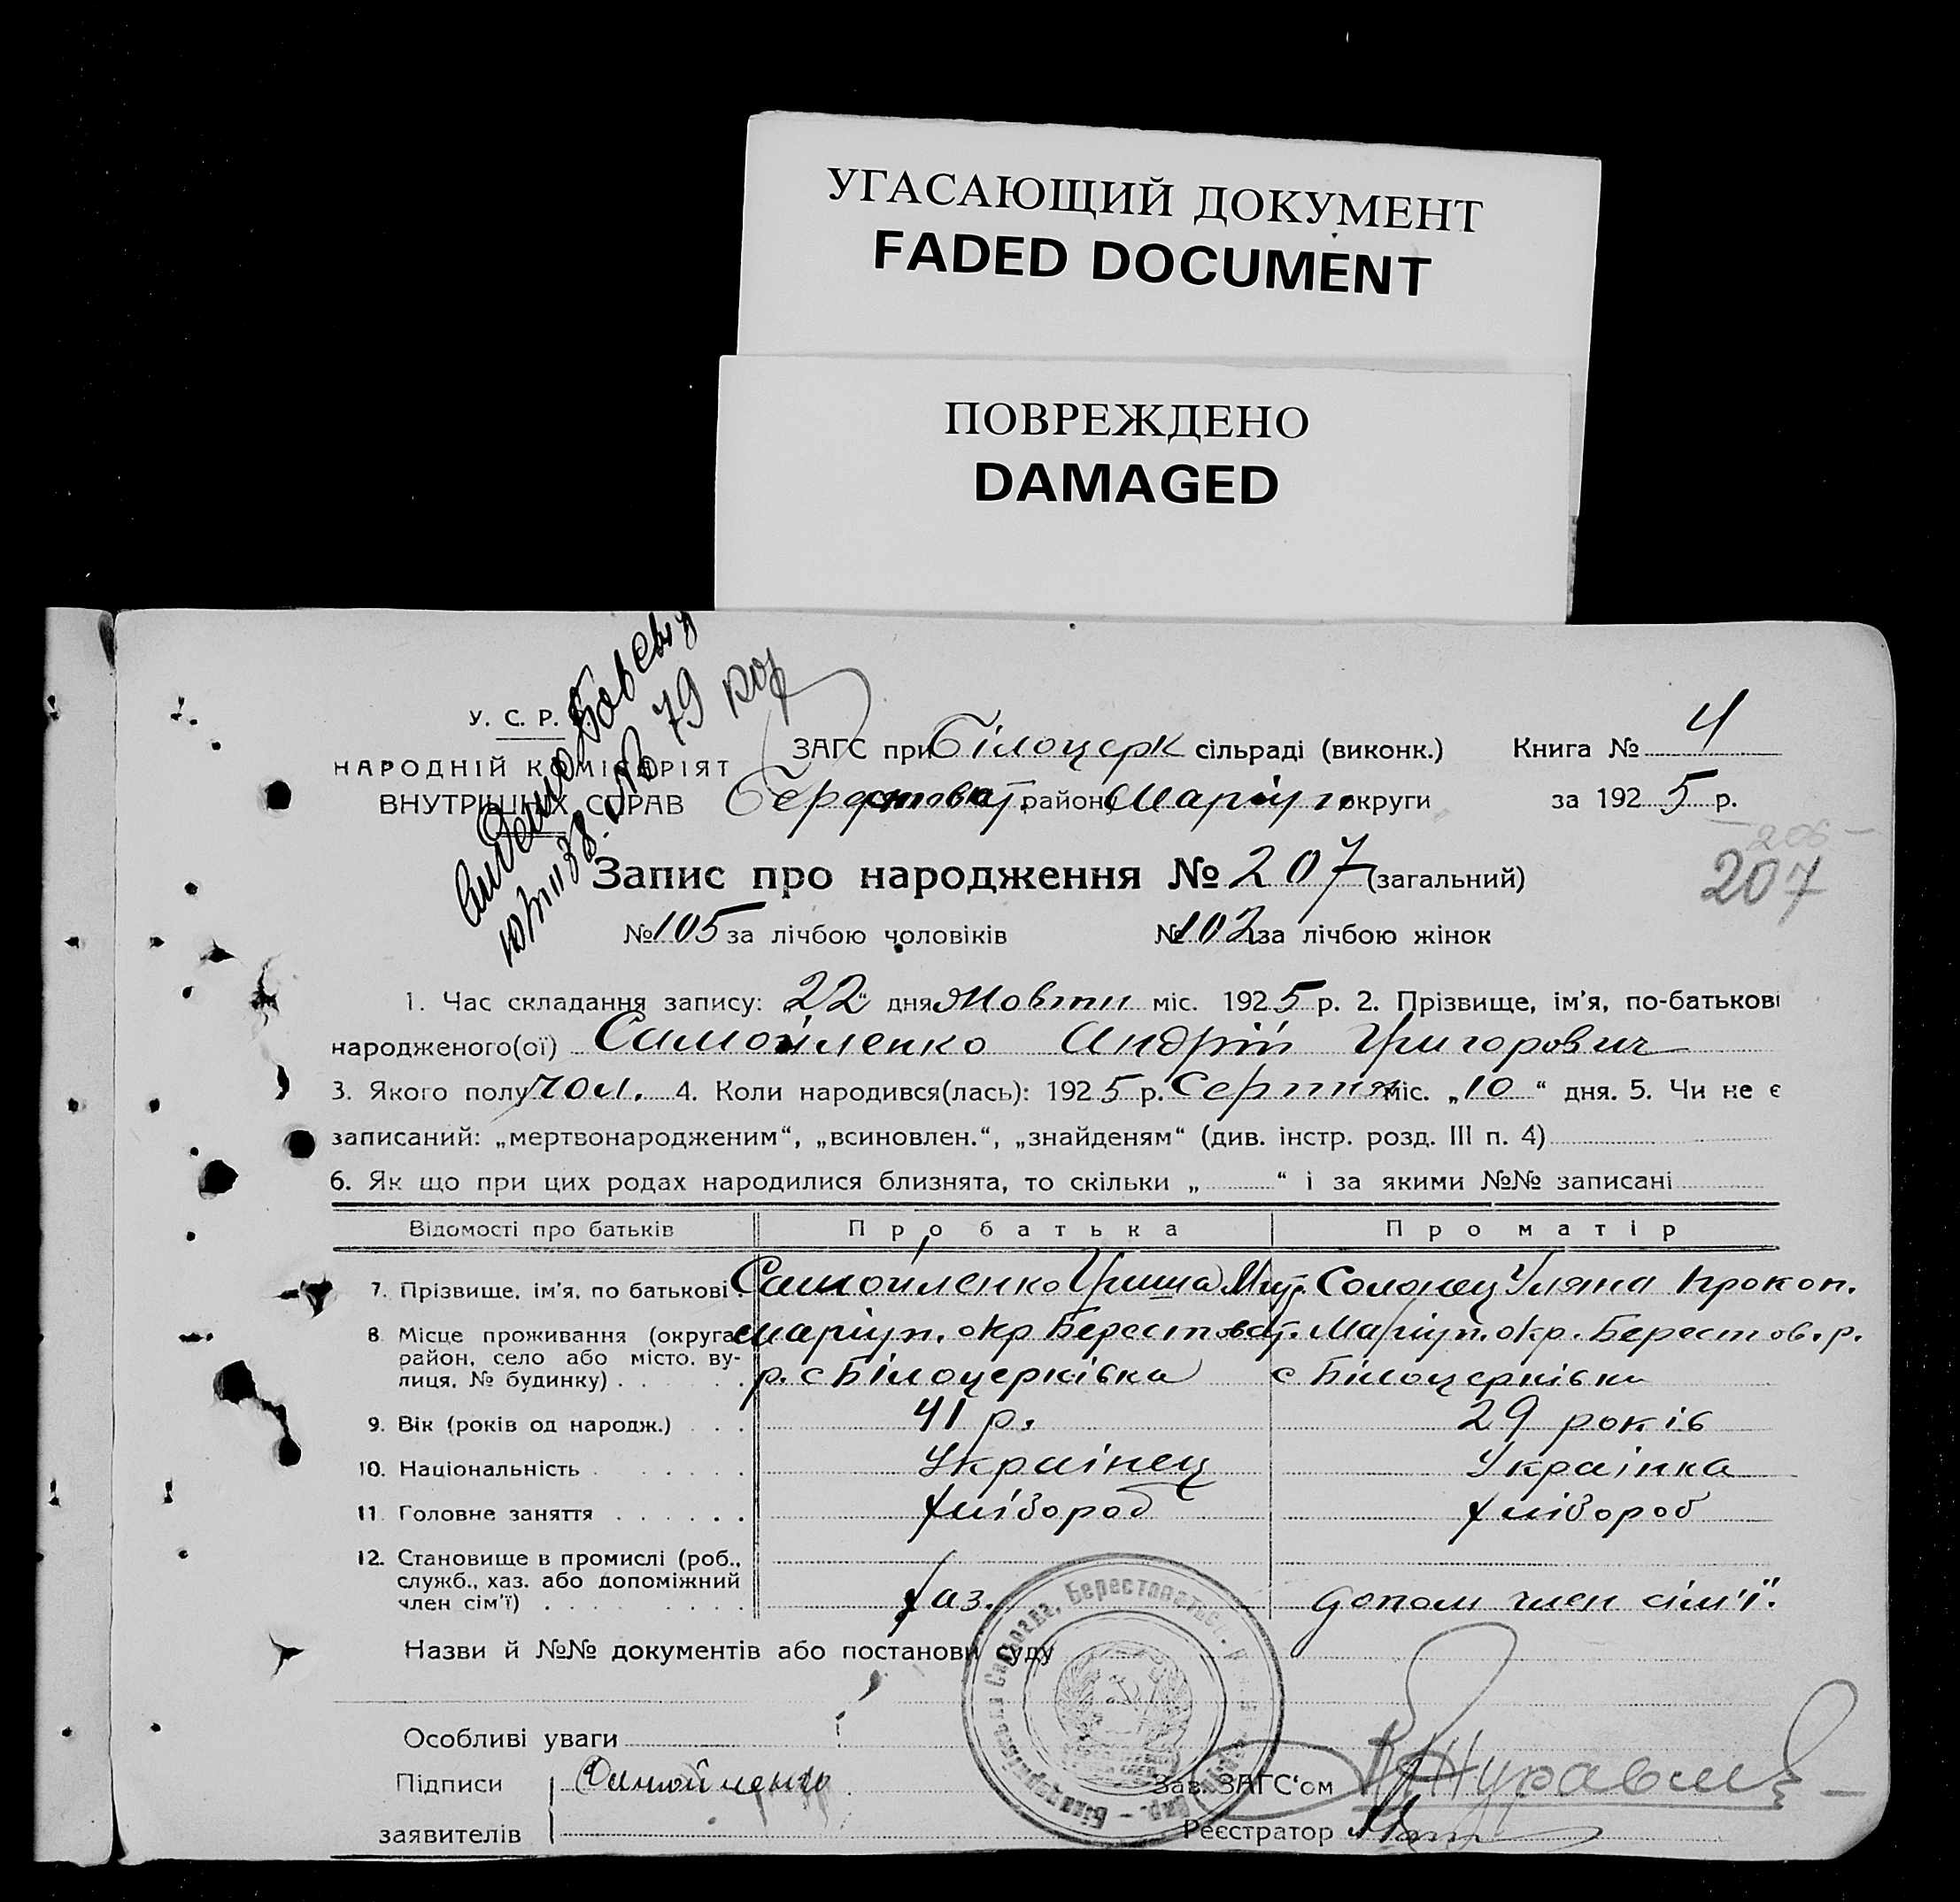 УГАСАЮЩИЙ ДОКУМЕНТ
FADED DOCUMENT
ПОВРЕЖДЕНО
DAMAGED
У. С. Р. Р.
НАРОДНІЙ КОМІСАРІЯТ
ВНУТРІШНІХ СПРАВ
79 год
ЗАГС при Білоцерк сільраді (виконк.) Книга № 4
Берестоват. району Маріуп округи за 1925 р.
206
Запис про народження № 207 (загальний) 207
№ 105 за лічбою чоловіків № 102 за лічбою жінок
1. Час складання запису: „22“ дня Жовтн міс. 1925 р. 2. Прізвище, ім'я, по-батькові
народженого(ої) Самойленко Андрій Григорович
3. Якого полу чол. 4. Коли народився(лась): 1925 р. Серпня міс. „10“ дня. 5. Чи не є
записаний: „мертвонародженим“, „всиновлен.“, „знайденям“ (див. інстр. розд. III п. 4)
6. Як що при цих родах народилися близнята, то скільки „ “ і за якими №№ записані
Відомості про батьків Про батька Про матір
7. Прізвище, ім'я, по батькові. Самойленко Гриша Солонец Уляна Прокоп.
8. Місце проживання (округа, Маріуп. окр. Берестоват. Маріуп. окр. Берестов. р.
район, село або місто, ву-
лиця, № будинку) р. с Білоцерківка с Білоцерківка
9. Вік (років од народж.) 41 р. 29 років
10. Національність Українец Українка
11. Головне заняття хлібороб хлібороб
12. Становище в промислі (роб.,
служб., хаз. або допоміжний
член сім'ї) хаз. допом член сім'ї.
Назви й №№ документів або постанови суду
Особливі уваги
Підписи Самойленко Зав. ЗАГС‘ом
заявителів Реєстратор